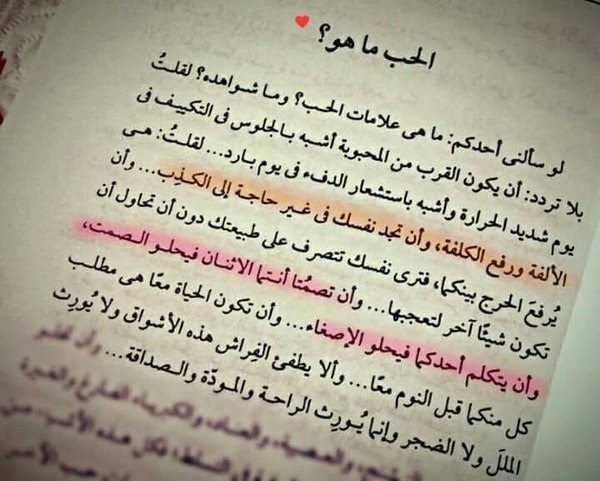 الحب ما هو؟
لو سألنى أحدكم: ما هى علامات الحب؟ وما شواهده؟ لقلتُ
بلا تردد: أن يكون القرب من المحبوبة أشبه بالجلوس فى التكييف فى
يوم شديد الحرارة وأشبه باستشعار الدفء فى يوم بارد... لقلتُ: هى
الألفة ورفع الكلفة، وأن تجد نفسك فى غير حاجة إلى الكذب... وأن
يُرفع الحرج بينكما، فترى نفسك تتصرف على طبيعتك دون أن تحاول أن
تكون شيئًا آخر لتعجبها... وأن تصمُتا أنتما الاثنان فيحلو الصمت،
وأن يتكلم أحدكما فيحلو الإصغاء... وأن تكون الحياة معًا هى مطلب
كل منكما قبل النوم معًا... وألا يطفئ الفِراش هذه الأشواق ولا يُورِث
الملل ولا الضجر وإنما يُورِث الراحة والمودّة والصداقة...